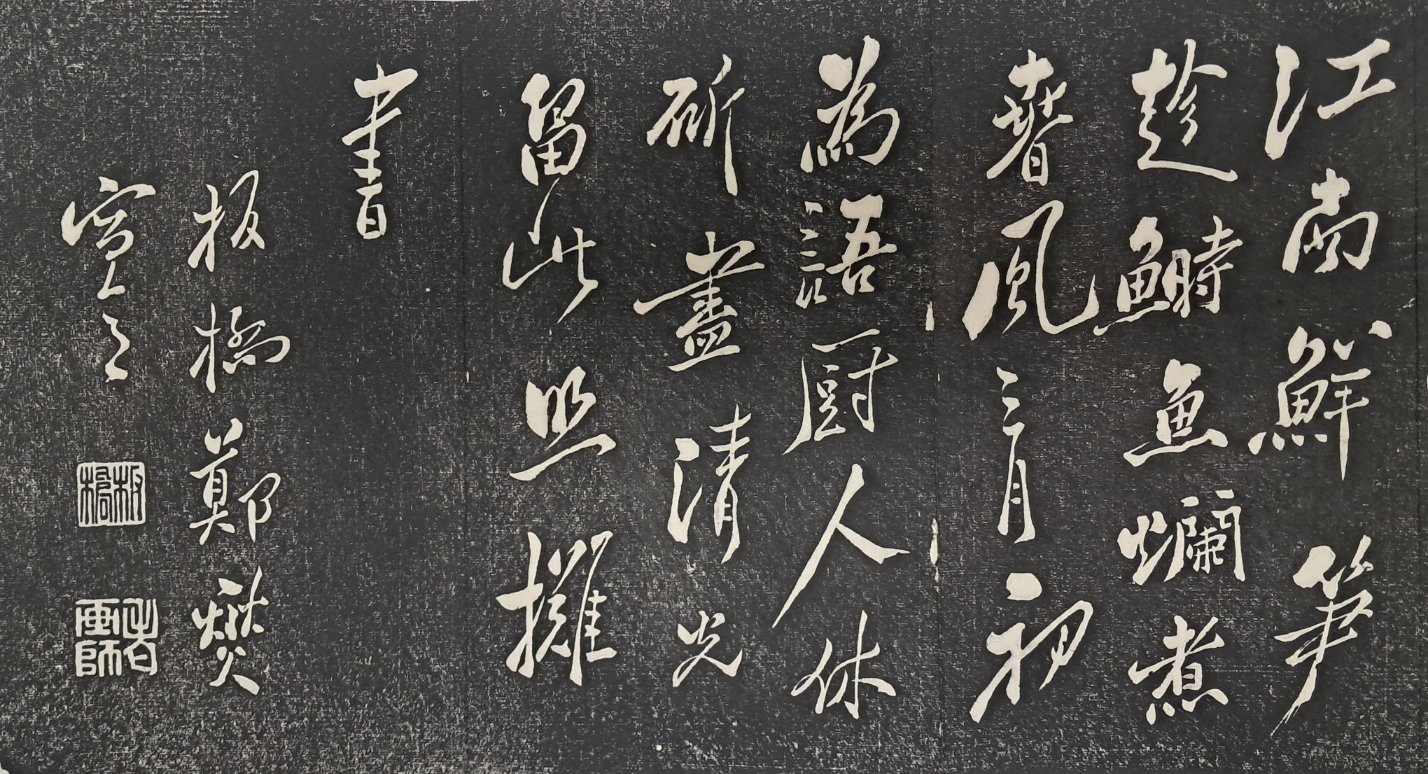 江南鮮笋
趁鰣魚爛煮
春風三月初
為語厨人休
斫盡清光
留此照攤
書
板橋鄭燮
寫之
板橋